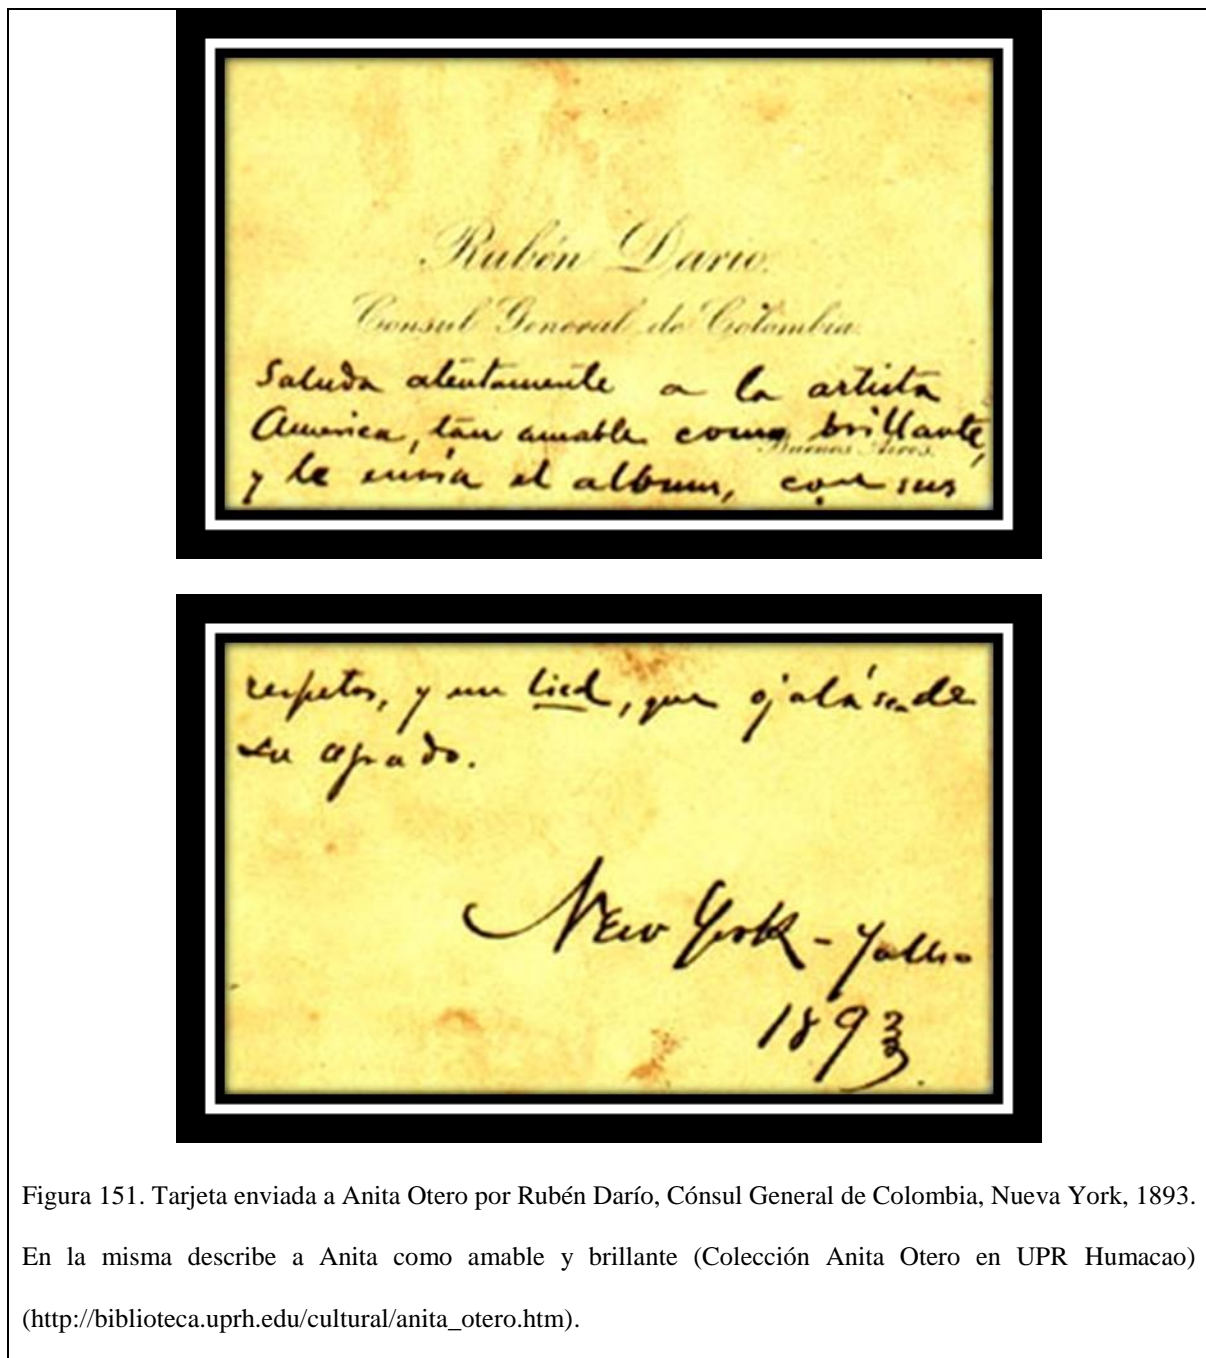 Rubén Dario.
Consul General de Colombia
Saluda atentamente a la artista
America, tan amable como brillante,
Buenos Aires.
y le envia el album, con sus
respetos, y un lied, que ojalá sea de
su agrado.
New York - Julio
1893.
Figura 151. Tarjeta enviada a Anita Otero por Rubén Darío, Cónsul General de Colombia, Nueva York, 1893.
En la misma describe a Anita como amable y brillante (Colección Anita Otero en UPR Humacao)
(http://biblioteca.uprh.edu/cultural/anita_otero.htm).